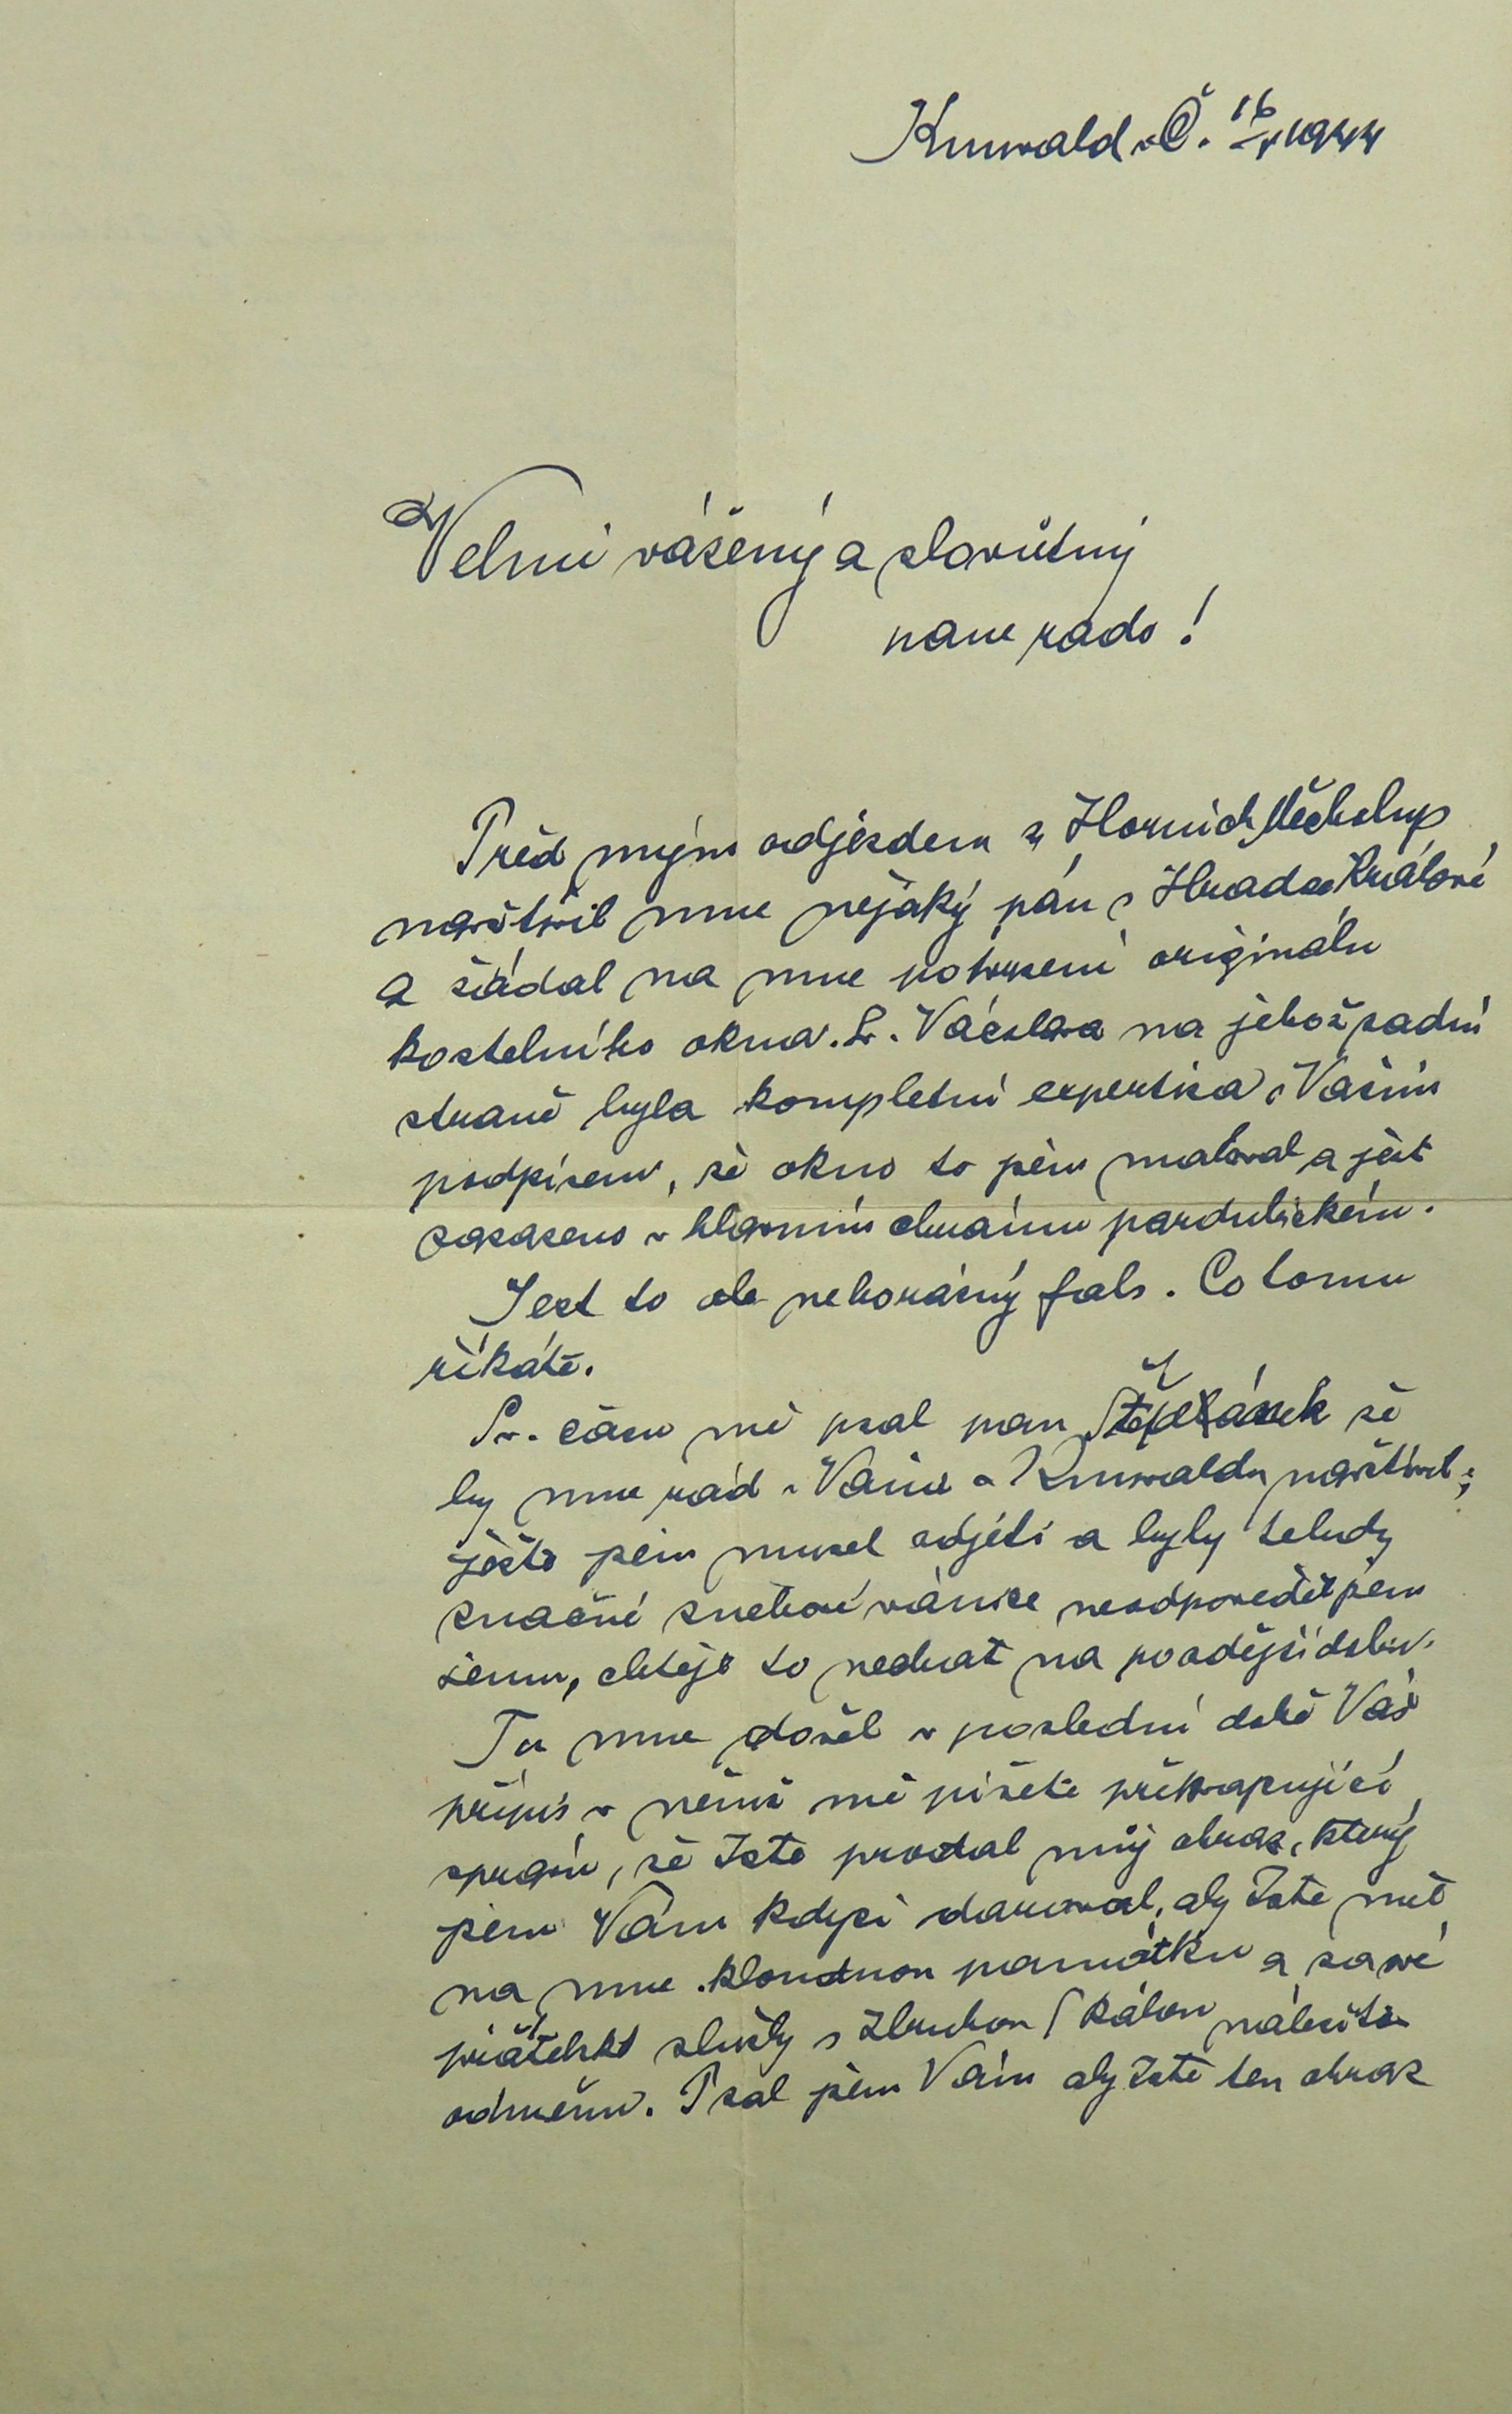 Kunwald v Č. 16/V 1944
Velmi vážený a slovůtný
pane rado!
Před mým odjezdem z Horních Měcholup
navštívil mne nějaký pán z Hradce Králové
a žádal na mne potvrzení originálu
kostelního okna Sv. Václava na jehož zadní
straně byla kompletní expertisa s Vaším
podpisem, že okno to jsem maloval a jest
zasazeno v hlavním chrámu pardubickém.
Jest to ale nehorázný fals. Co tomu
říkáte.
Sv. času mě psal pan Štěpánek že
by mne rád v Kunwaldu navštívil;
ješto jsem musel odjeti a byly tehdy
značné sněhové vánice neodpověděl jsem
jemu, chtěje to nechat na pozdější dobu.
Tu mne došel v poslední době Váš
přípis v němž mě píšete překvapující
zprávu, že Jste prodal můj obraz, který
jsem Vám kdysi daroval, aby Jste měl
na mne kloudnou památku a za své
přátelské služby s Hrubou Skálou náležitou
odměnu. Psal jsem Vám aby Jste ten obraz